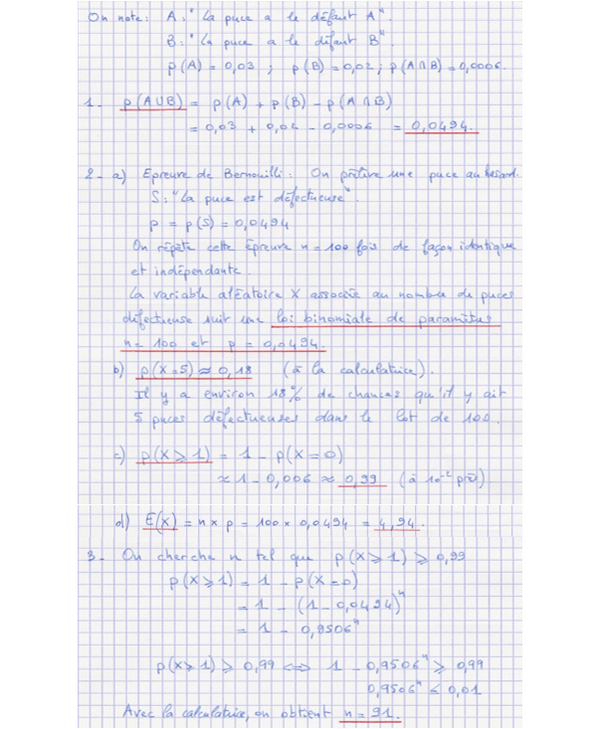 On note : A : "La puce a le défaut A".
B : "La puce a le défaut B".
p(A) = 0,03 ; p(B) = 0,02 ; p(A∩B) = 0,0006.
1- p(A∪B) = p(A) + p(B) - p(A∩B)
= 0,03 + 0,02 - 0,0006 = 0,0494.
2- a) Epreuve de Bernouilli : On prélève une puce au hasard.
S : "La puce est défectueuse".
p = p(S) = 0,0494
On répète cette épreuve n = 100 fois de façon identique
et indépendante.
La variable aléatoire X associée au nombre de puces
défectueuse suit une loi binomiale de paramètres
n = 100 et p = 0,0494.
b) p(X=5) ≈ 0,18 (à la calculatrice).
Il y a environ 18% de chances qu'il y ait
5 puces défectueuses dans le lot de 100.
c) p(X ⩾ 1) = 1 - p(X=0)
≈ 1 - 0,006 ≈ 0,99 (à 10⁻² près).
d) E(X) = n × p = 100 × 0,0494 = 4,94.
3- On cherche n tel que p(X ⩾ 1) ⩾ 0,99
p(X ⩾ 1) = 1 - p(X=0)
= 1 - (1 - 0,0494)ⁿ
= 1 - 0,9506ⁿ
p(X ⩾ 1) ⩾ 0,99 ⟺ 1 - 0,9506ⁿ ⩾ 0,99
0,9506ⁿ ⩽ 0,01
Avec la calculatrice, on obtient n = 91.